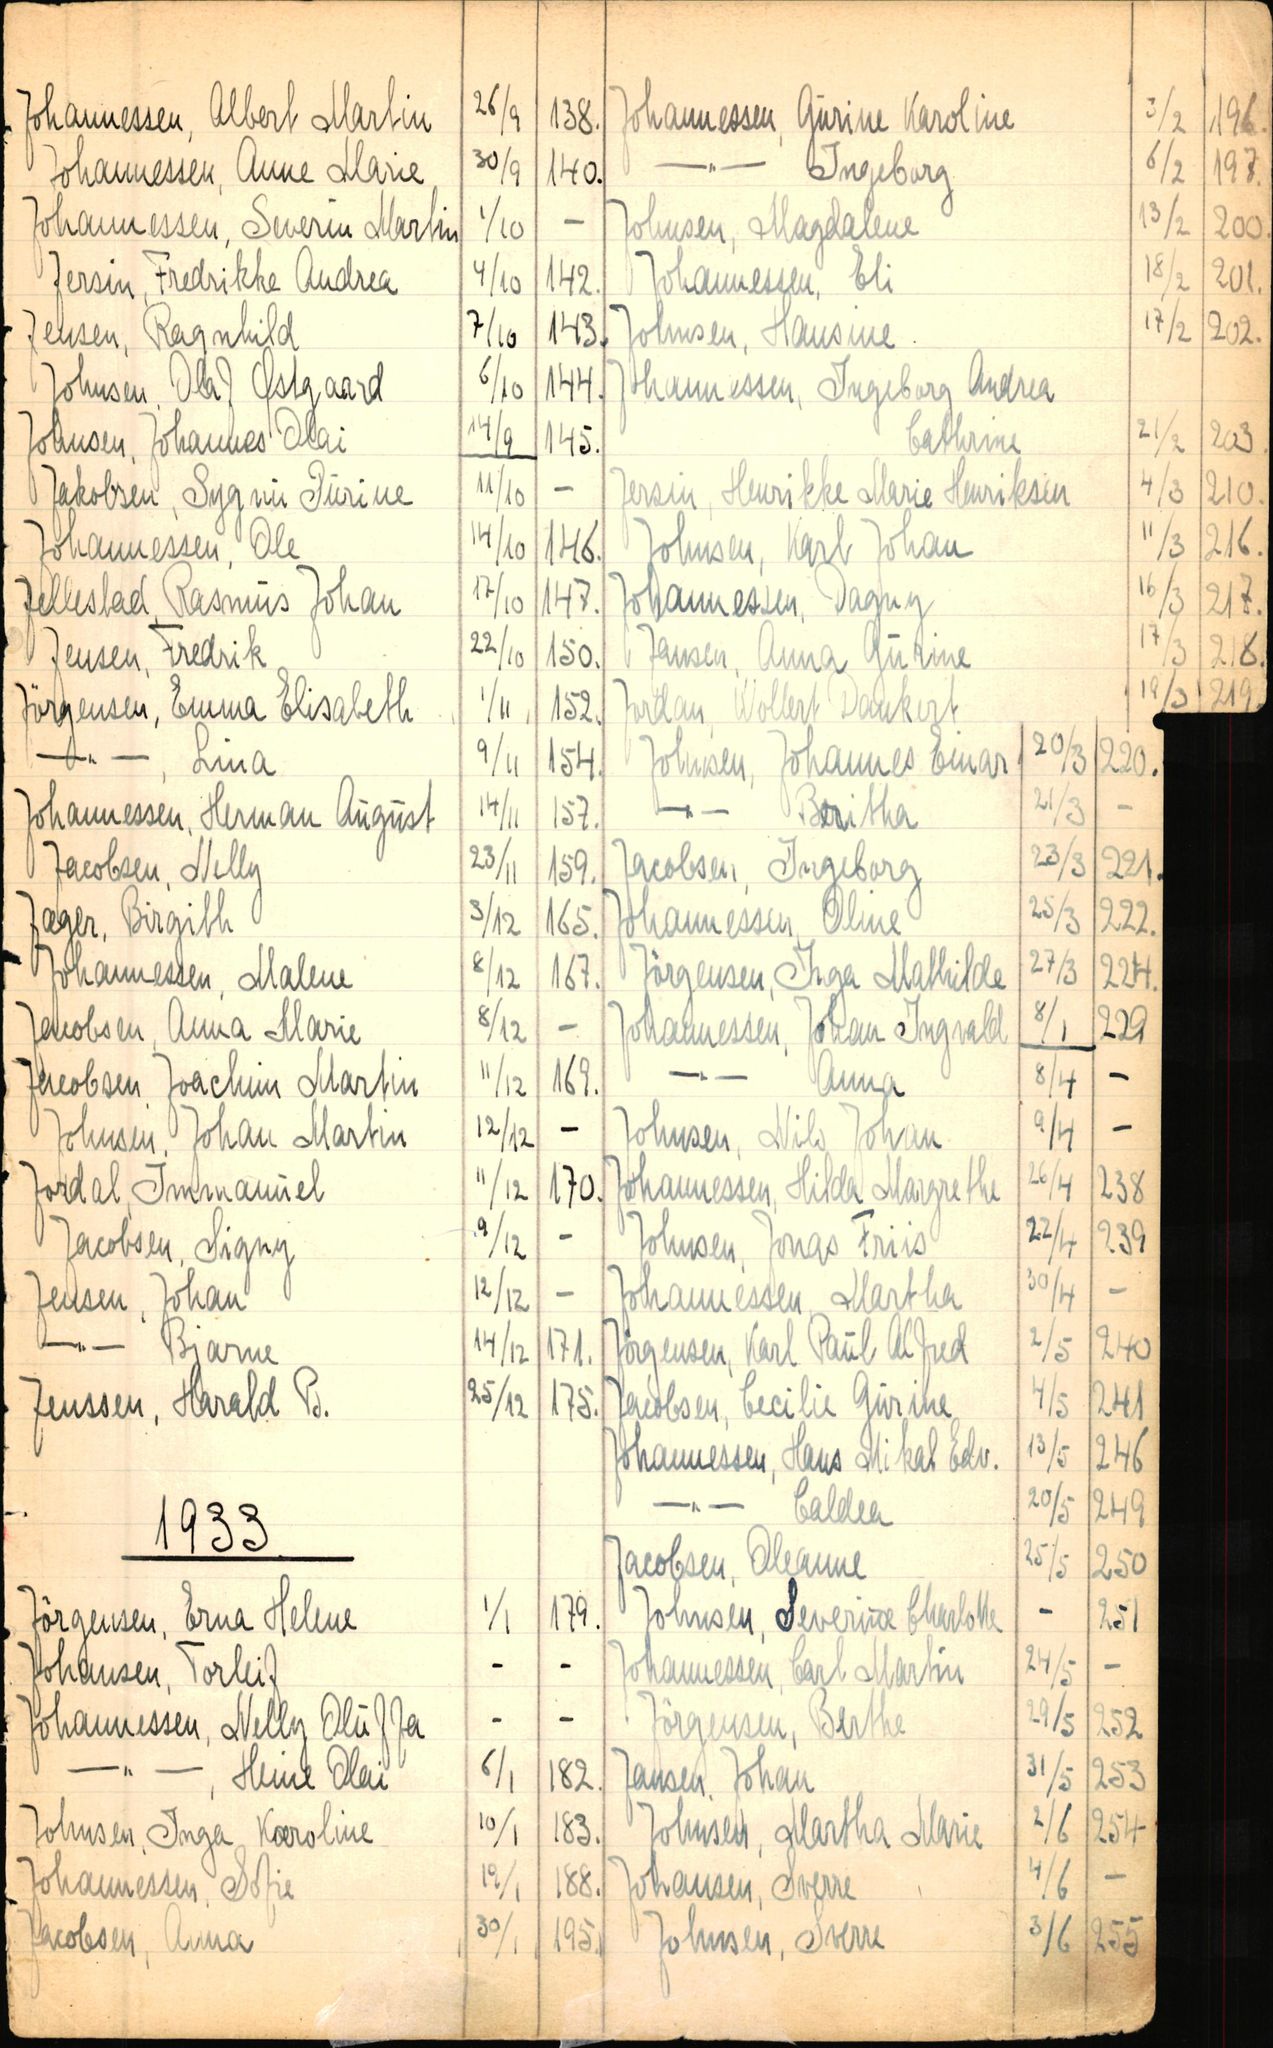 Johannessen, Albert Martin 26/9 138.
Johannessen, Anne Marie 30/9 140.
Johannessen, Severin Martin 1/10 -
Jersin, Fredrikke Andrea 4/10 142.
Jensen, Ragnhild 7/10 143.
Johnsen, Olaf Østgaard 6/10 144.
Johnsen, Johannes Olai 14/9 145.
Jakobsen, Sygni Pürine 11/10 -
Johannessen, Ole 14/10 146.
Jellestad, Rasmus Johan 17/10 147.
Jensen, Fredrik 22/10 150.
Jörgensen, Emma Elisabeth 1/11 152.
—"—, Lina 9/11 154.
Johannessen, Herman August 14/11 157.
Jacobsen, Nelly 23/11 159.
Jæger, Birgith 3/12 165.
Johannessen, Malene 8/12 167.
Jacobsen, Anna Marie 8/12 -
Jacobsen, Joachim Martin 11/12 169.
Johnsen, Johan Martin 12/12 -
Jordal, Immanuel 11/12 170.
Jacobsen, Signy 9/12 -
Jensen, Johan 12/12 -
—"— Bjarne 14/12 171.
Jenssen, Harald B. 25/12 175.
1933.
Jörgensen, Erna Helene 1/1 179.
Johansen, Torleif - -
Johannessen, Nelly Oluffa - -
—"—, Heine Olai 6/1 182.
Johnsen, Inga Karoline 10/1 183.
Johannessen, Sofie 19/1 188.
Jacobsen, Anna 30/1 195.
Johannessen, Gurine Karoline 3/2 196.
—"— Ingeborg 6/2 197.
Johnsen, Magdalene 13/2 200.
Johannessen, Eli 18/2 201.
Johnsen, Hansine 17/2 202.
Johannessen, Ingeborg Andrea
Cathrine 21/2 203
Jersin, Henrikke Marie Henriksen 4/3 210.
Johnsen, Karl Johan 11/3 216.
Johannessen, Dagny 16/3 217.
Jansen, Anna Gurine 17/3 218.
Jordan, Wollert Dankert 19/3 219.
Johnsen, Johannes Einar 20/3 220.
—"— Beritha 21/3 -
Jacobsen, Ingeborg 23/3 221.
Johannessen, Oline 25/3 222.
Jörgensen, Inga Mathilde 27/3 224.
Johannessen, Johan Ingvald 8/1 229
—"— Anna 8/4 -
Johnsen, Nils Johan 9/4 -
Johannessen, Hilda Margrethe 26/4 238
Johnsen, Jonas Friis 22/4 239
Johannessen, Martha 30/4 -
Jörgensen, Karl Paul Alfred 2/5 240
Jacobsen, Cecilie Gurine 4/5 241
Johannessen, Hans Mikal Edv. 13/5 246
—"— Caldea 20/5 249
Jacobsen, Oleanne 25/5 250
Johnsen, Severine Charlotte - 251
Johannessen, Carl Martin 24/5 -
Jörgensen, Berthe 29/5 252
Jansen, Johan 31/5 253
Johnsen, Martha Marie 2/6 254
Johansen, Sverre 4/6 -
Johnsen, Sverre 3/6 255